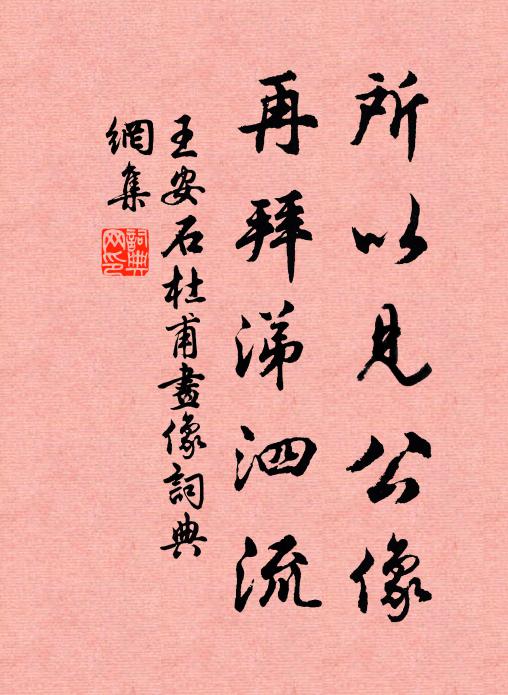 所以見公像
再拜涕泗流
王安石杜甫畫像詞典
網集
詞典
网印